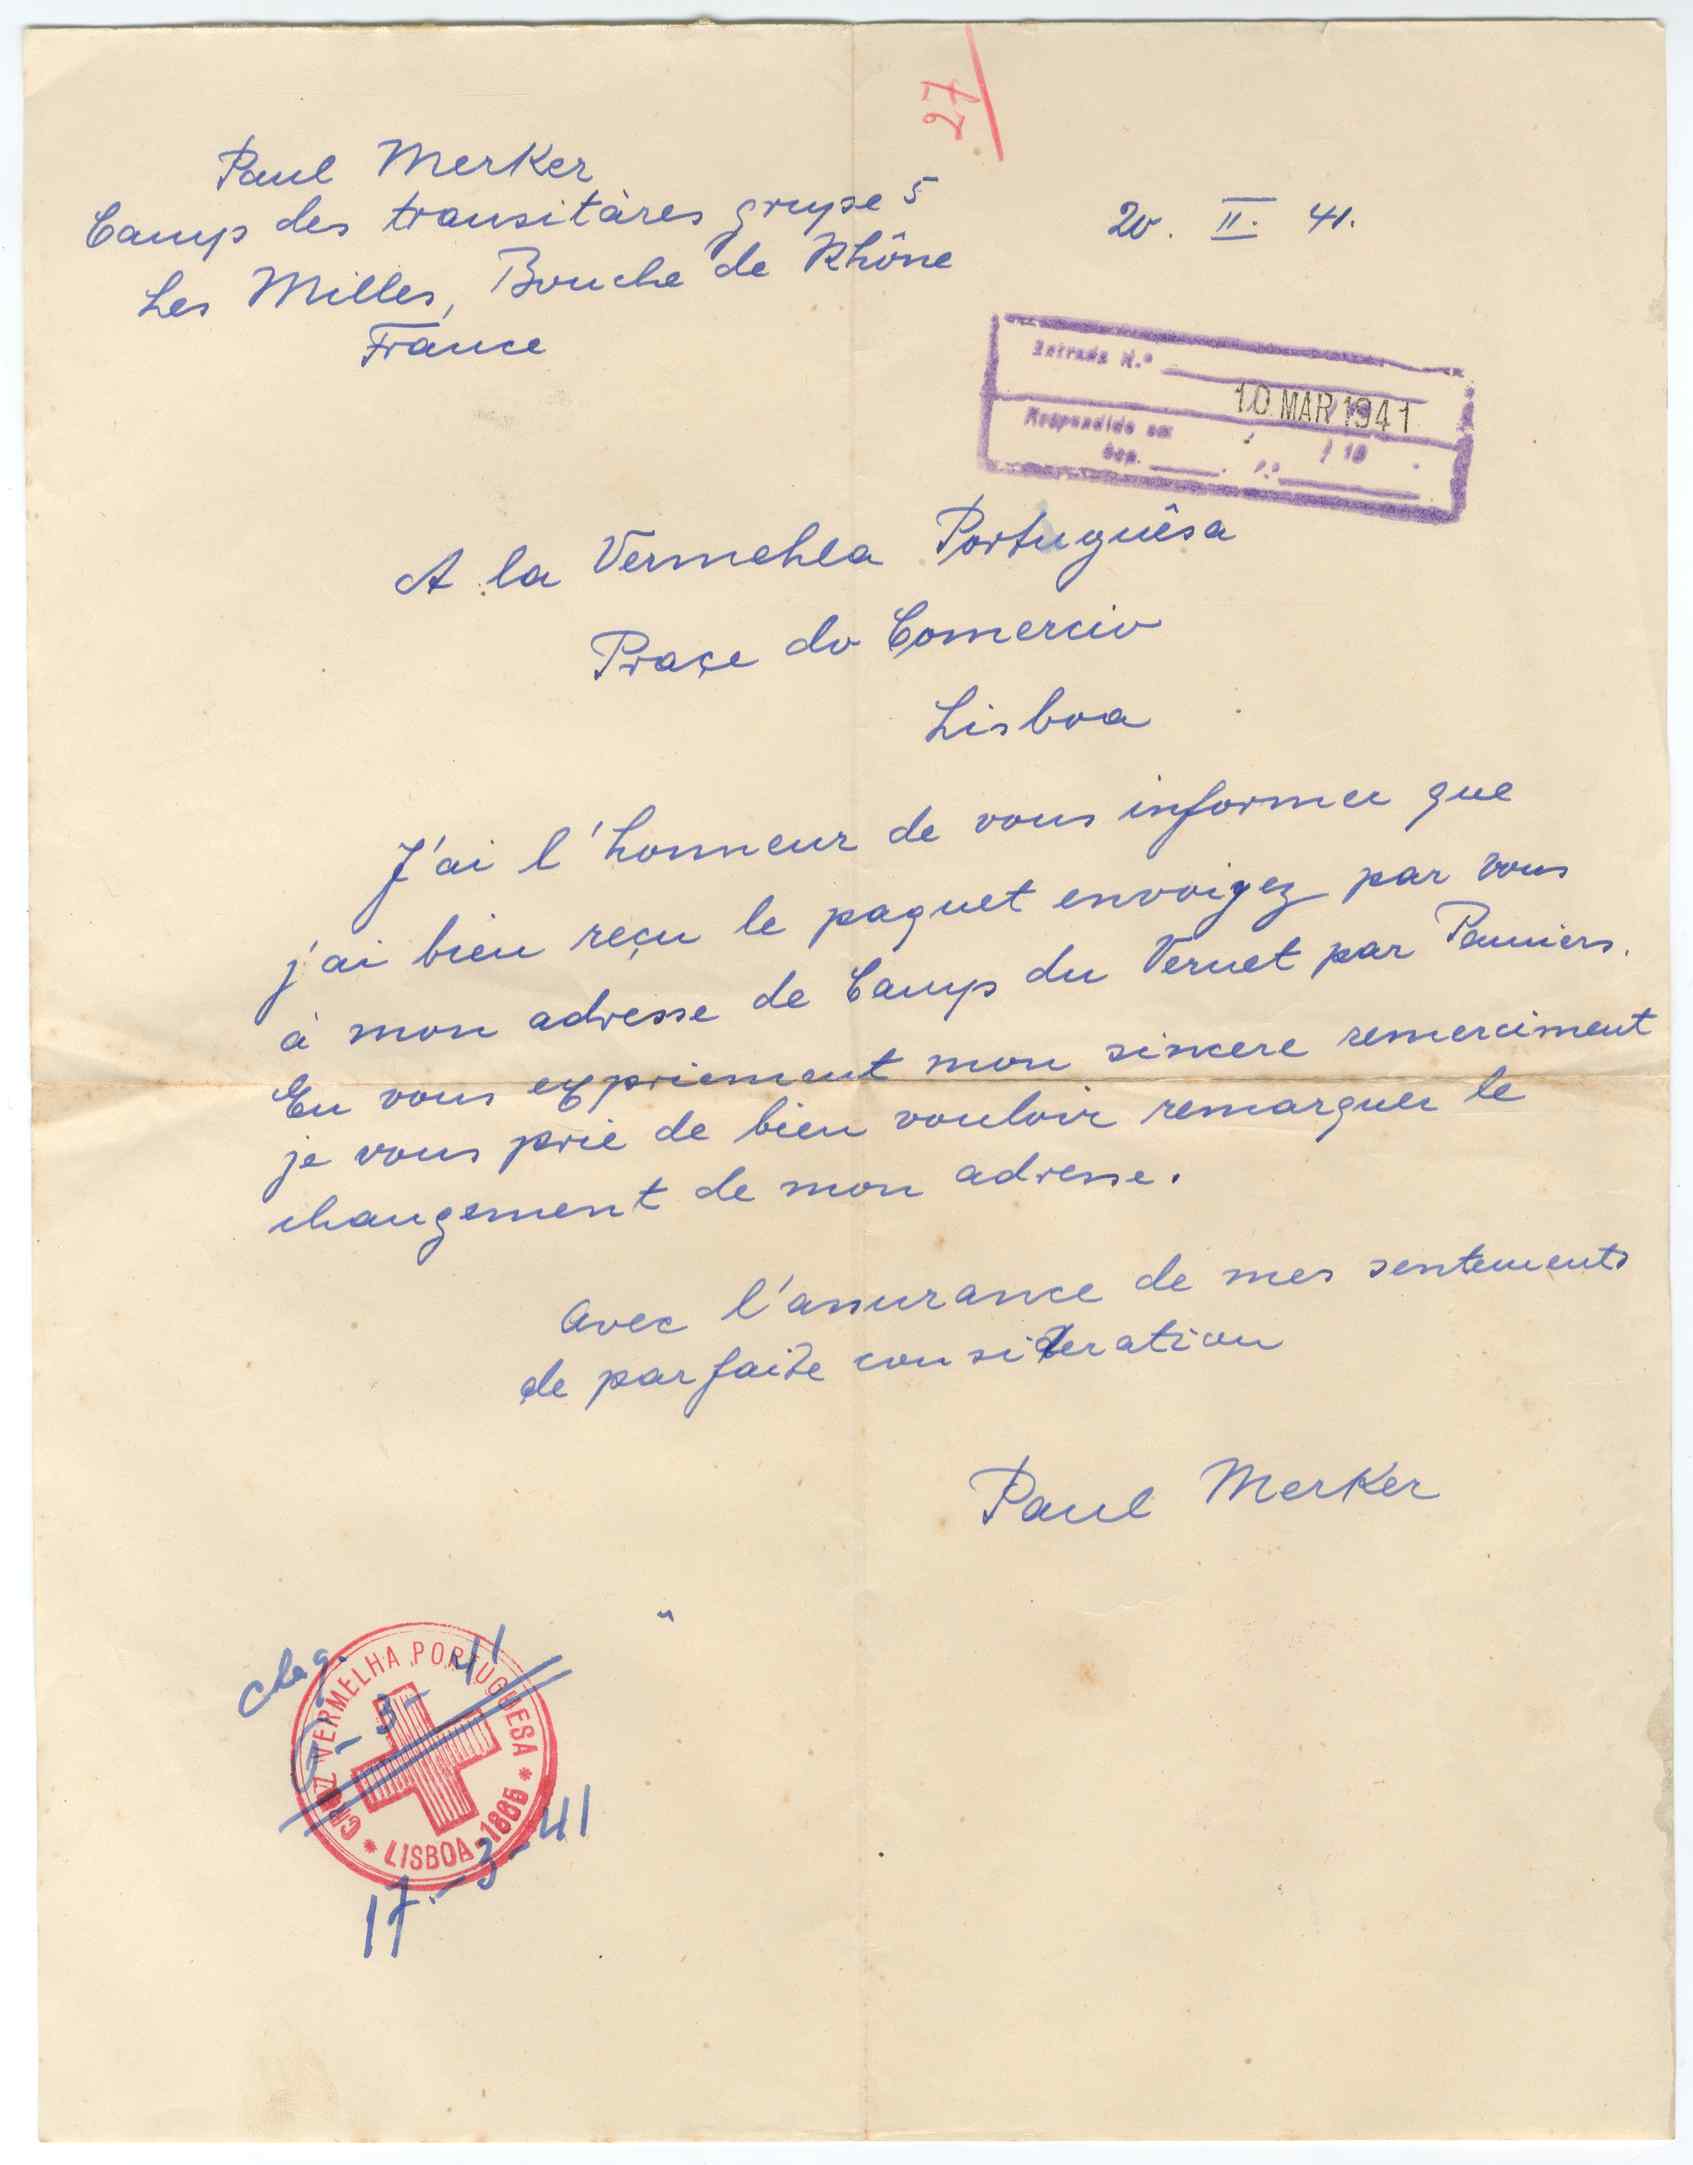 27
Paul Merker
Camp des transitàres grupe 5
Les Milles, Bouche de Rhône
France
20. II. 41.
Entrada N.º
10 MAR 1941
Respondido em / / 19
Sep. P.º
A la Vermehla Portuguêsa
Praçe do Comercio
Lisboa
J'ai l'honneur de vous informer que
j'ai bien reçu le paquet envoigez par vous
à mon adresse de Camp du Vernet par Pamiers.
En vous expriement mon sincere remerciment
je vous prie de bien vouloir remarquer le
changement de mon adresse.
Avec l'assurance de mes sentements
de parfaite consideration
Paul Merker
CRUZ VERMELHA PORTUGUESA
* LISBOA - 1865 *
17-3-41